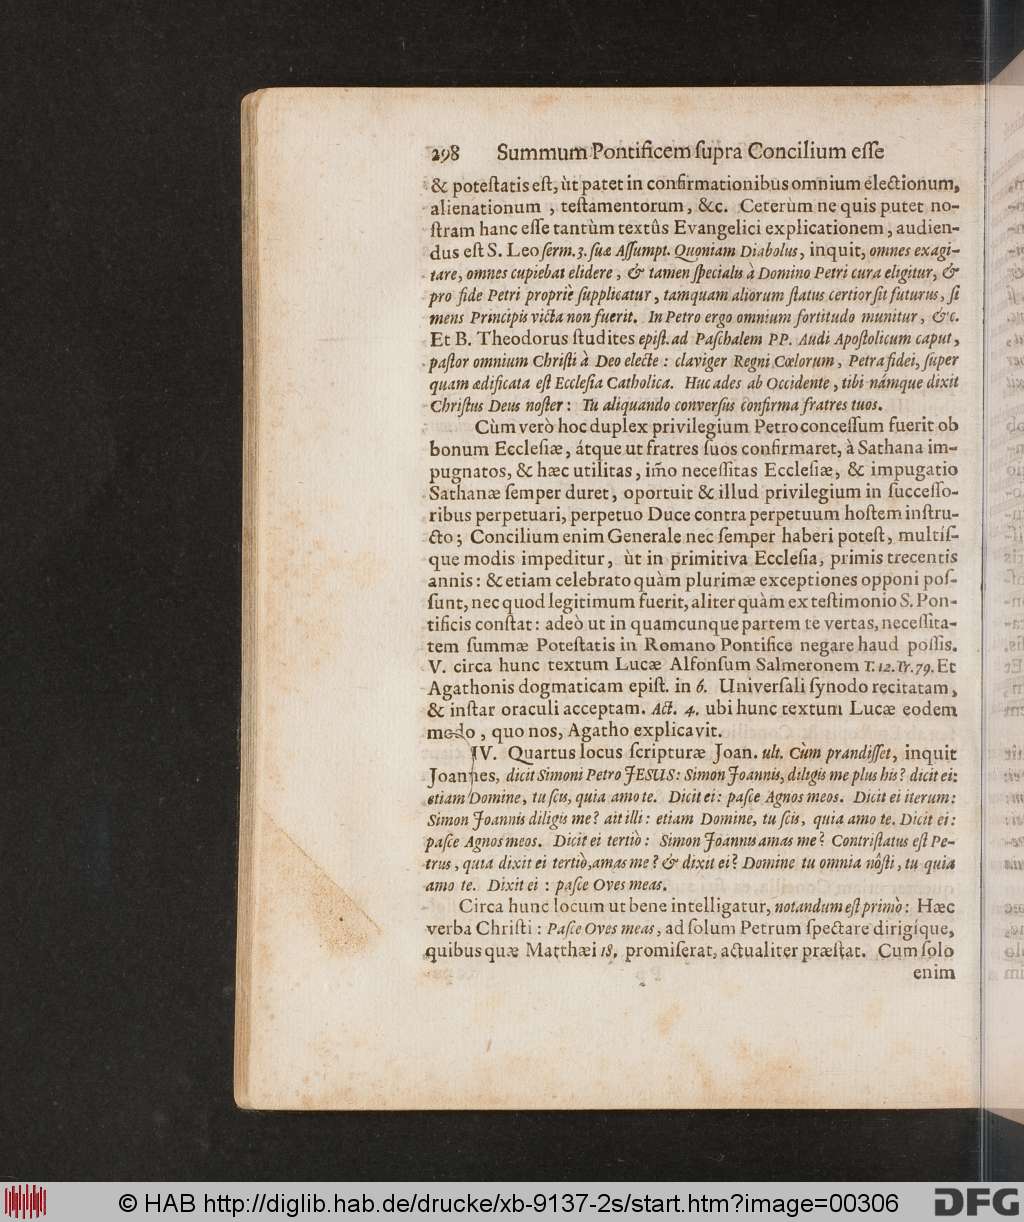 298 Summum Pontificem ſupra Concilium eſſe
& poteſtatis eſt, ùt patet in confirmationibus omnium electionum,
alienationum , teſtamentorum, &c. Ceterùm ne quis putet no-
ſtram hanc eſſe tantùm textûs Evangelici explicationem, audien-
dus eſt S. Leo ſerm. 3. ſuæ Aſſumpt. Quoniam Diabolus, inquit, omnes exagi-
tare, omnes cupiebat elidere , & tamen ſpecialis à Domino Petri cura eligitur, &
pro fide Petri propriè ſupplicatur, tamquam aliorum ſtatus certior ſit futurus, ſi
mens Principis victa non fuerit. In Petro ergo omnium fortitudo munitur, &c.
Et B. Theodorus ſtudites epiſt. ad Paſchalem PP. Audi Apoſtolicum caput,
paſtor omnium Chriſti à Deo electe : claviger Regni Cœlorum, Petra fidei, ſuper
quam ædificata eſt Eccleſia Catholica. Huc ades ab Occidente, tibi námque dixit
Chriſtus Deus noſter: Tu aliquando converſus confirma fratres tuos.
Cùm verò hoc duplex privilegium Petro conceſſum fuerit ob
bonum Eccleſiæ, átque ut fratres ſuos confirmaret, à Sathana im-
pugnatos, & hæc utilitas, im̃o neceſſitas Eccleſiæ, & impugatio
Sathanæ ſemper duret, oportuit & illud privilegium in ſucceſſo-
ribus perpetuari, perpetuo Duce contra perpetuum hoſtem inſtru-
cto; Concilium enim Generale nec ſemper haberi poteſt, multíſ-
que modis impeditur, ùt in primitiva Eccleſia, primis trecentis
annis: & etiam celebrato quàm plurimæ exceptiones opponi poſ-
ſunt, nec quod legitimum fuerit, aliter quàm ex teſtimonio S. Pon-
tificis conſtat: adeò ut in quamcunque partem te vertas, neceſſita-
tem ſummæ Poteſtatis in Romano Pontifice negare haud poſſis.
V. circa hunc textum Lucæ Alfonſum Salmeronem T. 12. Tr. 79. Et
Agathonis dogmaticam epiſt. in 6. Univerſali ſynodo recitatam,
& inſtar oraculi acceptam. Act. 4. ubi hunc textum Lucæ eodem
modo, quo nos, Agatho explicavit.
IV. Quartus locus ſcripturæ Joan. ult. Cùm prandiſſet, inquit
Joannes, dicit Simoni Petro JESUS: Simon Joannis, diligis me plus his? dicit ei:
etiam Domine, tu ſcis, quia amo te. Dicit ei: paſce Agnos meos. Dicit ei iterum:
Simon Joannis diligis me? ait illi: etiam Domine, tu ſcis, quia amo te. Dicit ei:
paſce Agnos meos. Dicit ei tertiò: Simon Joannis amas me? Contriſtatus eſt Pe-
trus, quia dixit ei tertiò, amas me? & dixit ei? Domine tu omnia nôſti, tu quia
amo te. Dixit ei : paſce Oves meas.
Circa hunc locum ut bene intelligatur, notandum eſt primò: Hæc
verba Chriſti: Paſce Oves meas, ad ſolum Petrum ſpectare dirigíque,
quibus quæ Matthæi 18. promiſerat, actualiter præſtat. Cum ſolo
enim
© HAB http://diglib.hab.de/drucke/xb-9137-2s/start.htm?image=00306
DFG